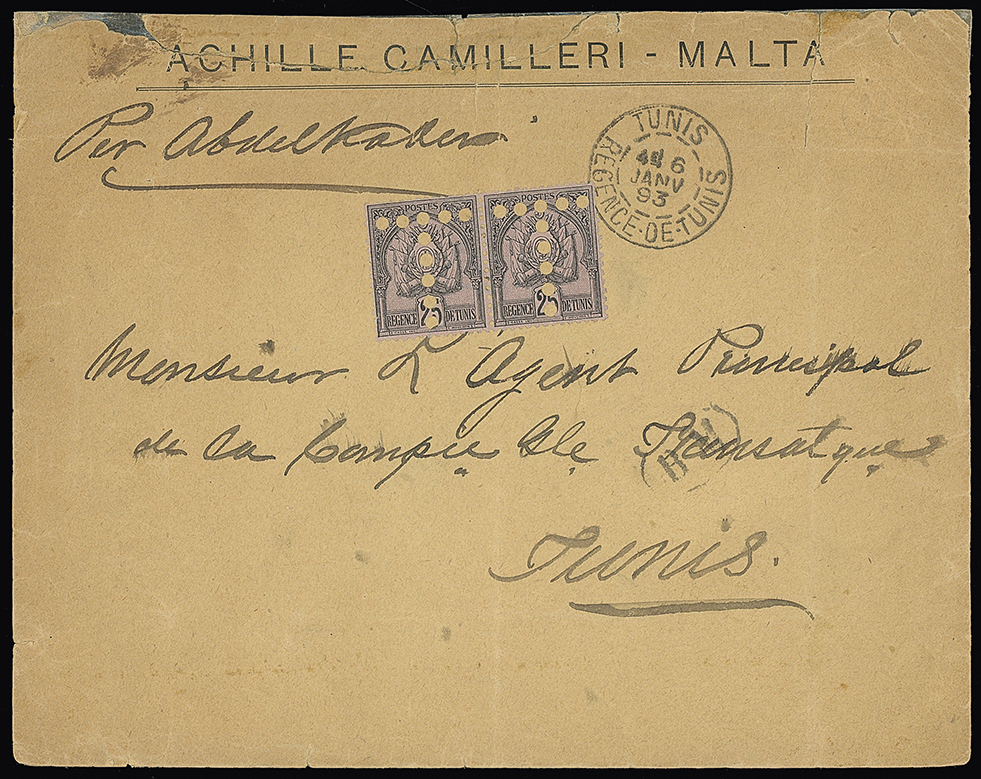 ACHILLE CAMILLERI - MALTA
Per Abdelkader
TUNIS
6
JANV
93
REGENCE-DE-TUNIS
POSTES
25
REGENCE DE TUNIS
POSTES
25
REGENCE DE TUNIS
Monsieur L'Agent Principal
de la Compie Gle Transatque
Tunis.